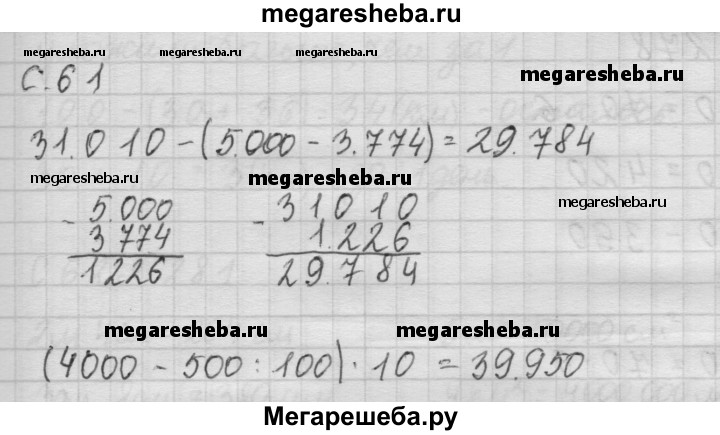 megaresheba.ru
megaresheba.ru megaresheba.ru megaresheba.ru
с. 61 megaresheba.ru
31.010 - (5.000 - 3.774) = 29.784
megaresheba.ru megaresheba.ru megaresheba.ru
- 5.000 - 31010
3 774 1.226
1226 29.784
megaresheba.ru megaresheba.ru
(4000 - 500 : 100) · 10 = 39.950
Мегарешеба.ру